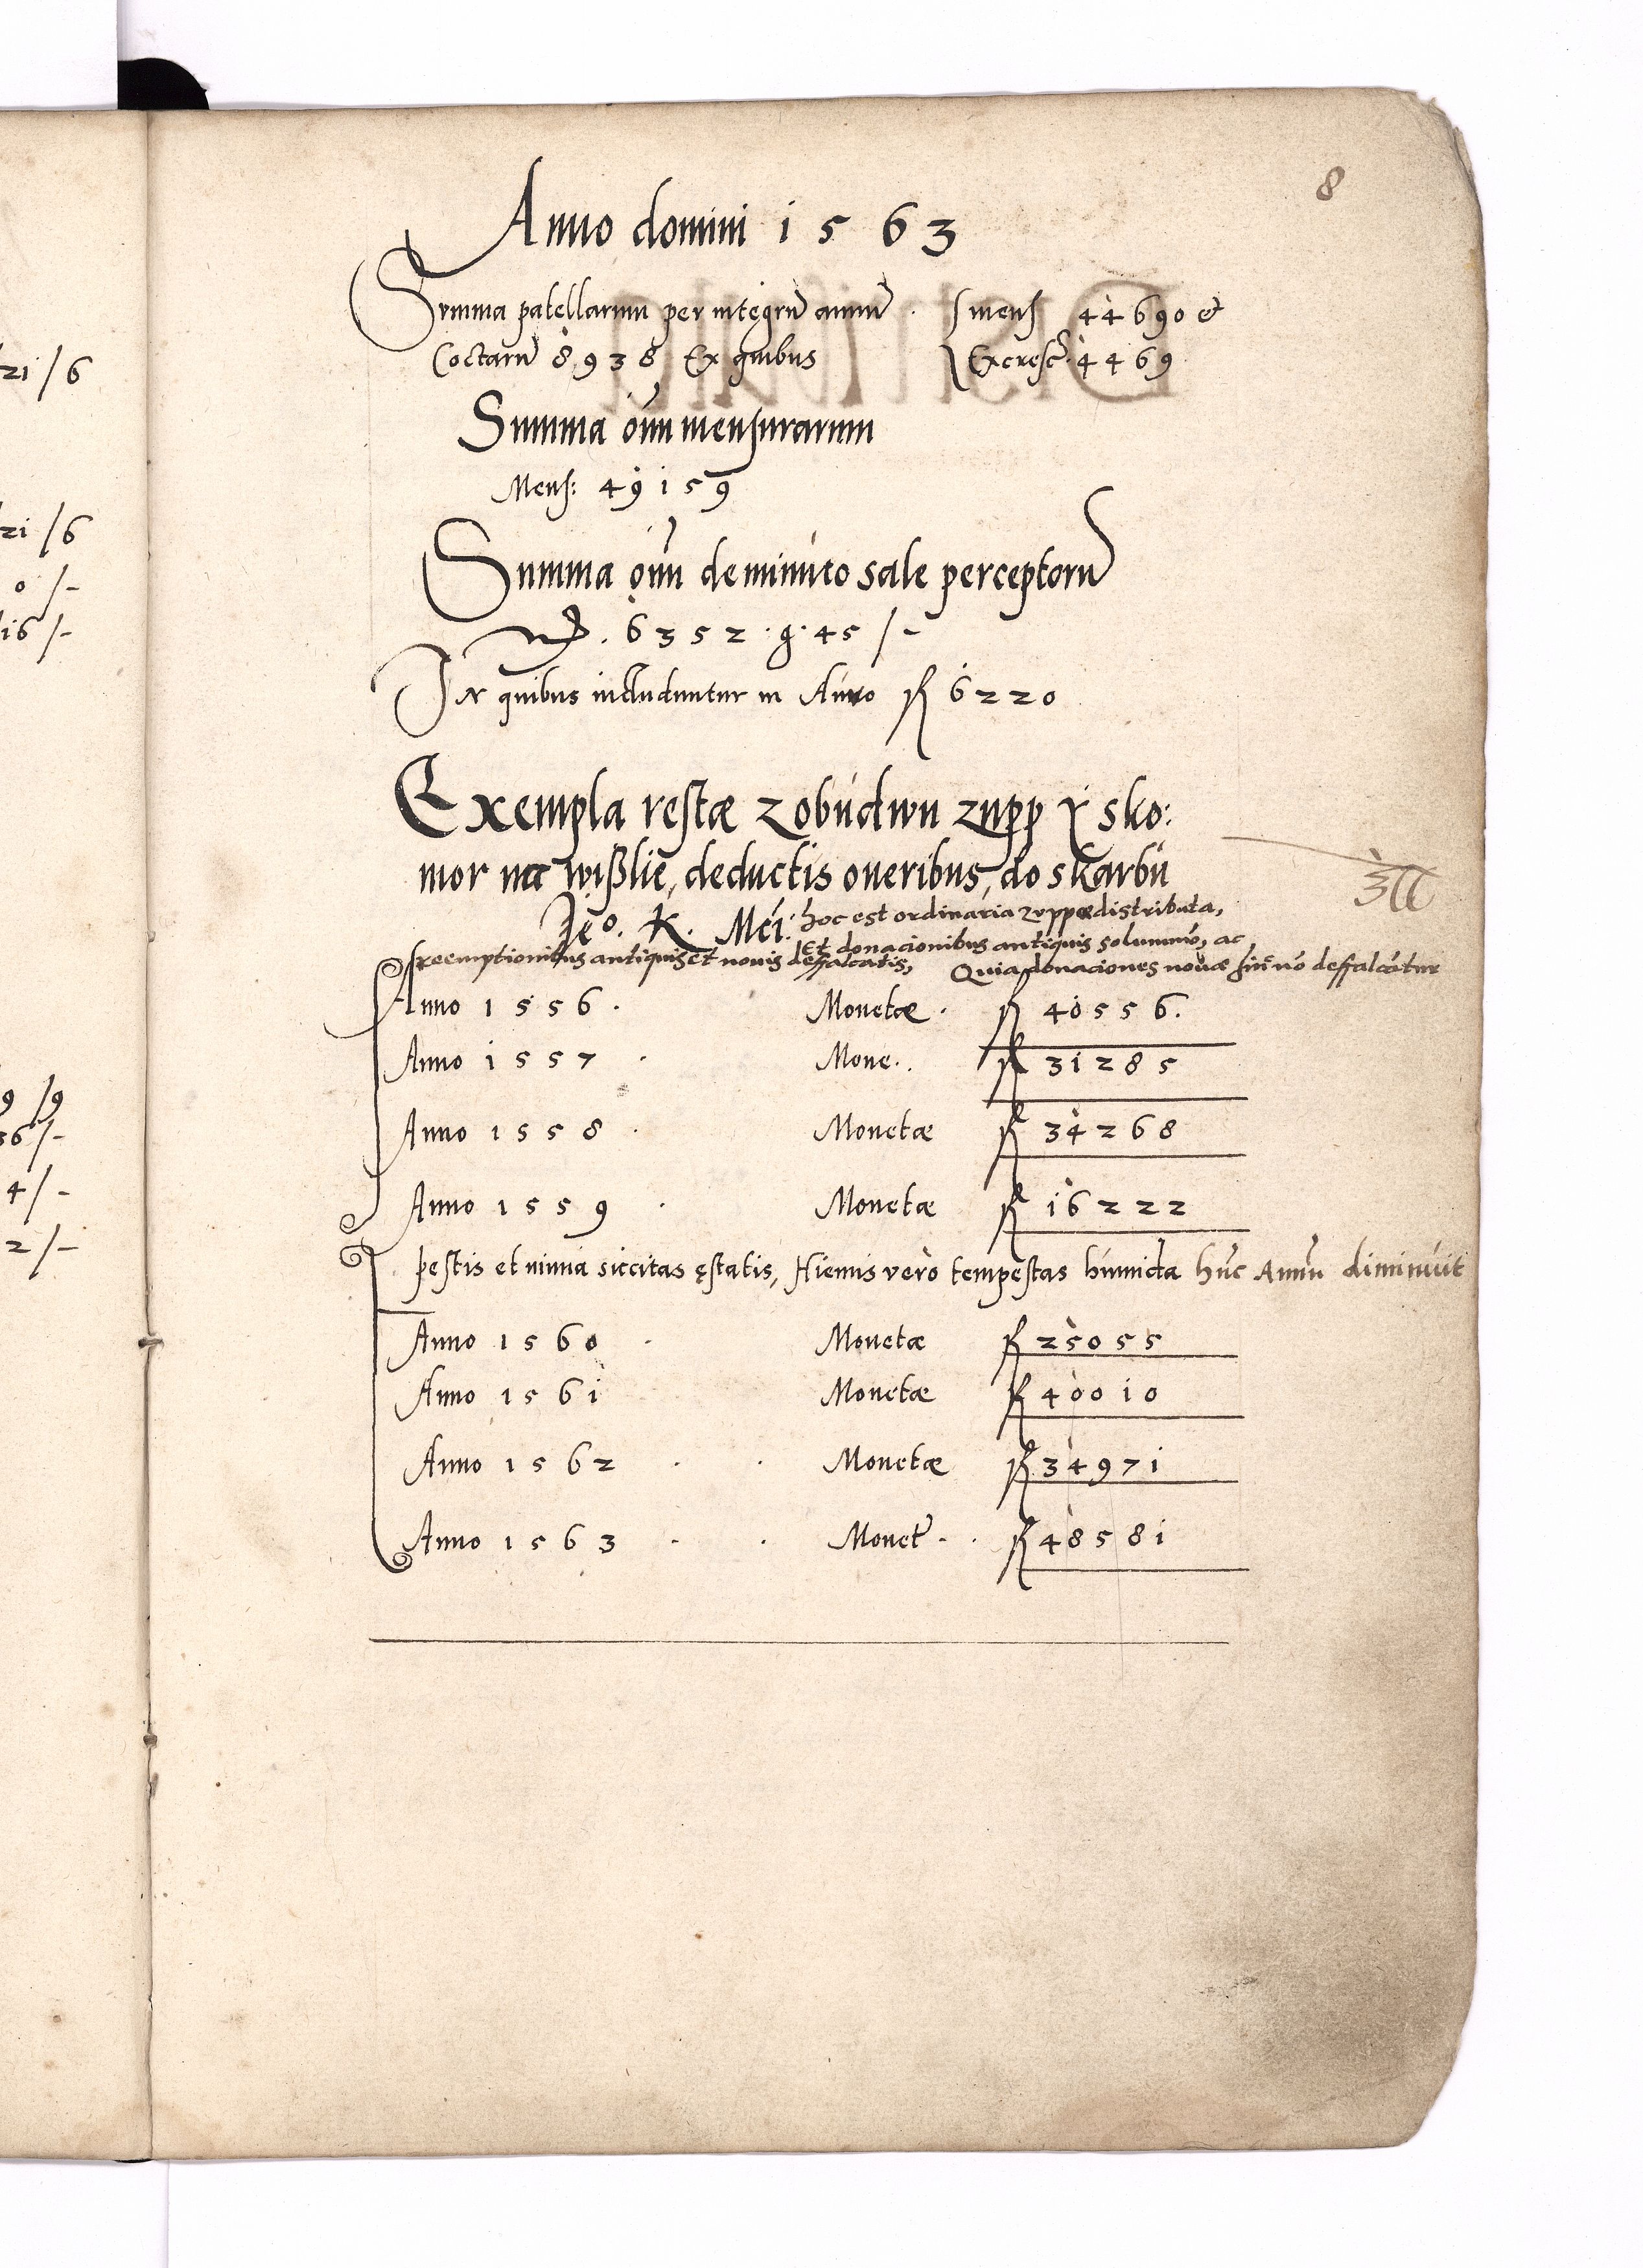 8
Anno domini 1563
Summa patellarum per integrũ annũ . mens 44690 et
Coctarũ 8938 Ex quibus Excresc: 4469
Summa oĩm mensurarum
Mens: 49159
Summa oĩm de minuto sale perceptorũ
6352 . g . 45 / -
In quibus includuntur in Anno 6220
Exempla restæ z obudwu zupp ÿ sko:
mor na wißlie, deductis oneribus, do skarbu
Je⁰. K. Mci: hoc est ordinaria zuppæ distributa,
Et donacionibus antiquis solummo, ac
reemptionibus antiquis et nouis deffalcatis, Quia donaciones nouæ hinc no deffalcātur
Anno 1556 . Monetæ . 40556.
Anno 1557 . Mone. . 31285
Anno 1558 . Monetæ 34268
Anno 1559 . Monetæ 16222
Pestis et nimia siccitas ęstatis, Hiemis vero tempestas humida hũc Annũ diminuit
Anno 1560 . Monetæ 25055
Anno 1561 Monetæ 40010
Anno 1562 . . Monetæ 34971
Anno 1563 . . Monet . . 48581
21 / 6
21 / 6
0 / -
16 / -
9 / 9
36 / -
4 / -
2 / -